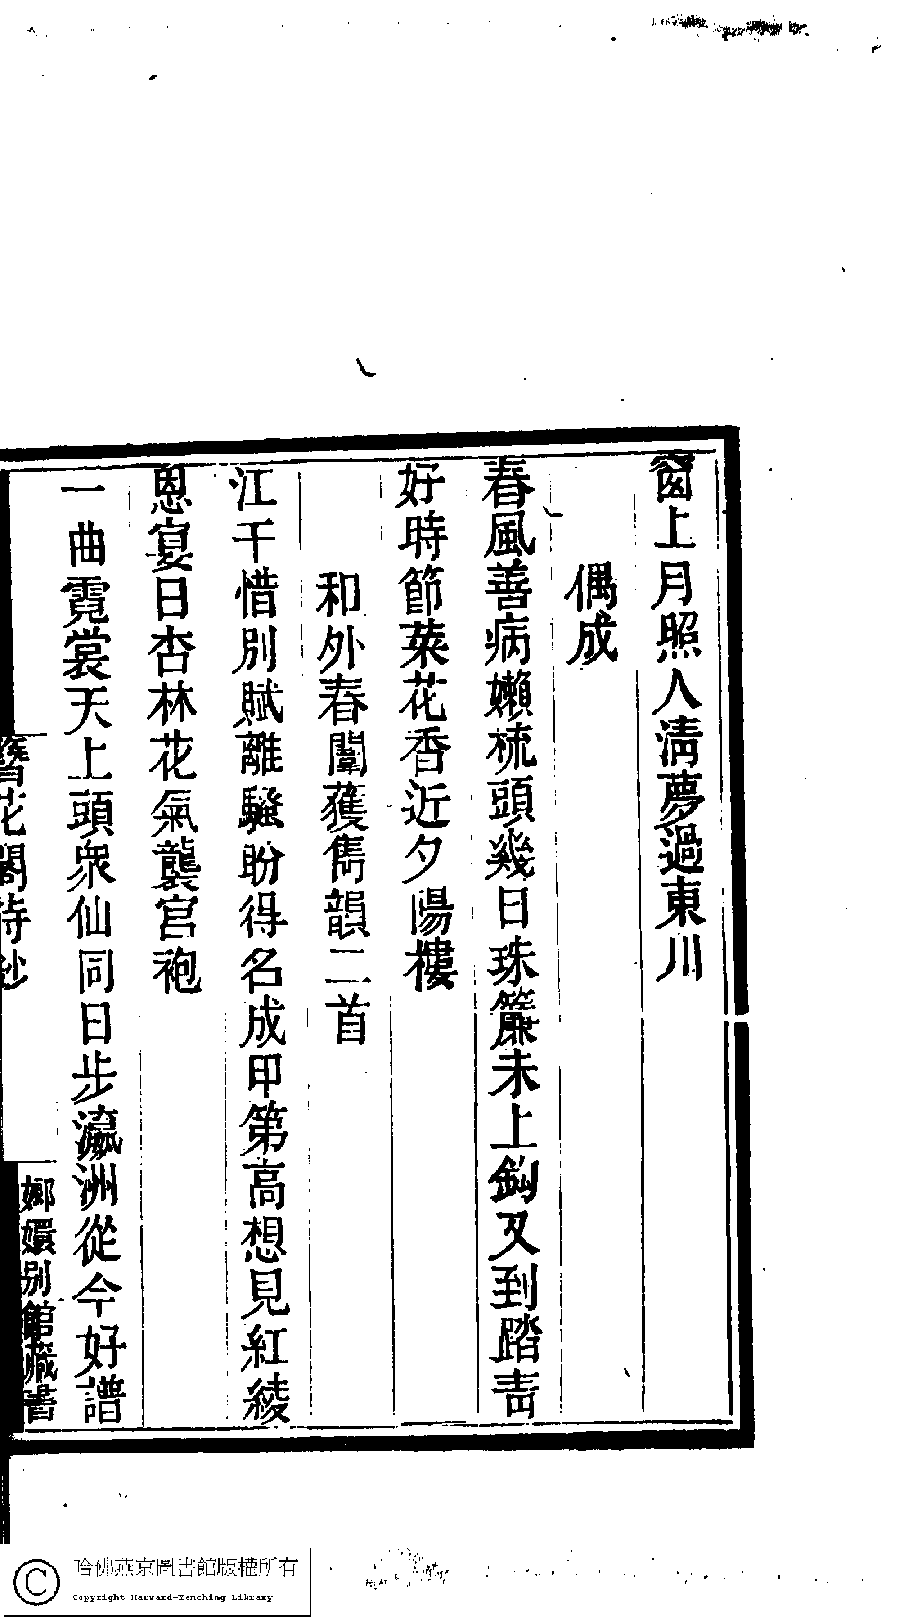 窗上月照人淸夢過東川
偶成
春風善病嬾梳頭幾日珠簾未上鉤又到踏靑
好時節菜花香近夕陽樓
和外春闈獲雋韻二首
江干惜別賦離騷盼得名成甲第高想見紅綾
恩宴日杏林花氣襲宮袍
一曲霓裳天上頭衆仙同日步瀛洲從今好譜
簪花閣詩鈔
嫏嬛別館藏書
哈佛燕京圖書館版權所有
Copyright Harvard-Yenching Library